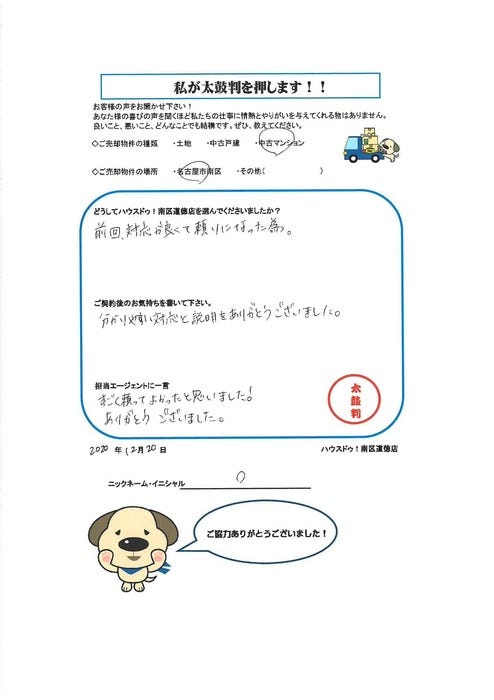 私が太鼓判を押します！！
お客様の声をお聞かせ下さい！
あなた様の喜びの声を聞くほど私たちの仕事に情熱とやりがいを与えてくれる物はありません。
良いこと、悪いこと、どんなことでも結構です。ぜひ、教えてください。
◇ご売却物件の種類　・土地　・中古戸建　・中古マンション
◇ご売却物件の場所　・名古屋市南区　・その他（　　　　　　）
どうしてハウスドゥ！南区道徳店を選んでくださいましたか？
前回、対応が良くて頼りになった為。
ご契約後のお気持ちを書いて下さい。
分かりやすい対応と説明をありがとうございました。
担当エージェントに一言
すごく頼ってよかったと思いました！
ありがとう ございました。
太鼓判
2020 年 12月 20 日
ハウスドゥ！南区道徳店
ニックネーム・イニシャル　O
ご協力ありがとうございました！